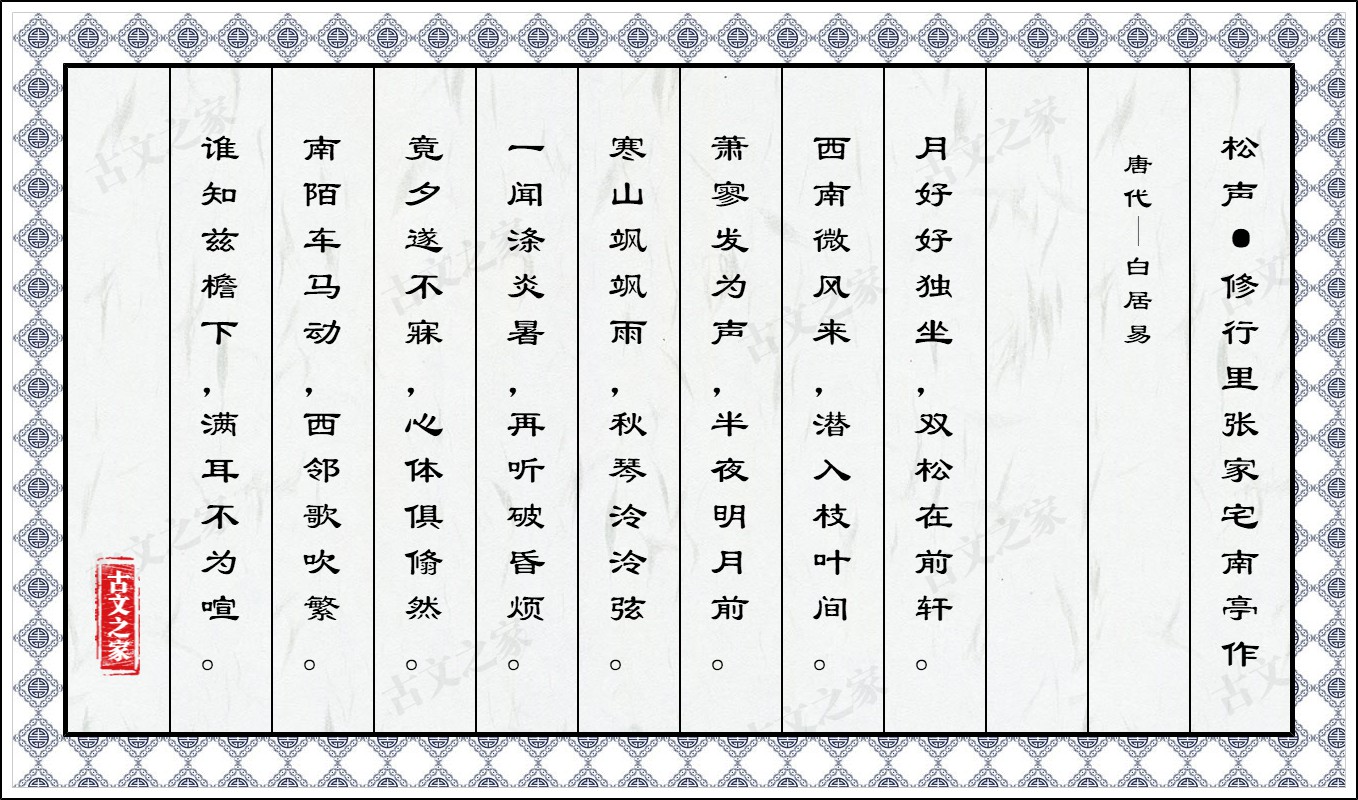 松声●修行里张家宅南亭作
唐代—白居易
月好好独坐，双松在前轩。
西南微风来，潜入枝叶间。
萧寥发为声，半夜明月前。
寒山飒飒雨，秋琴泠泠弦。
一闻涤炎暑，再听破昏烦。
竟夕遂不寐，心体俱翛然。
南陌车马动，西邻歌吹繁。
谁知兹檐下，满耳不为喧。
古文之家